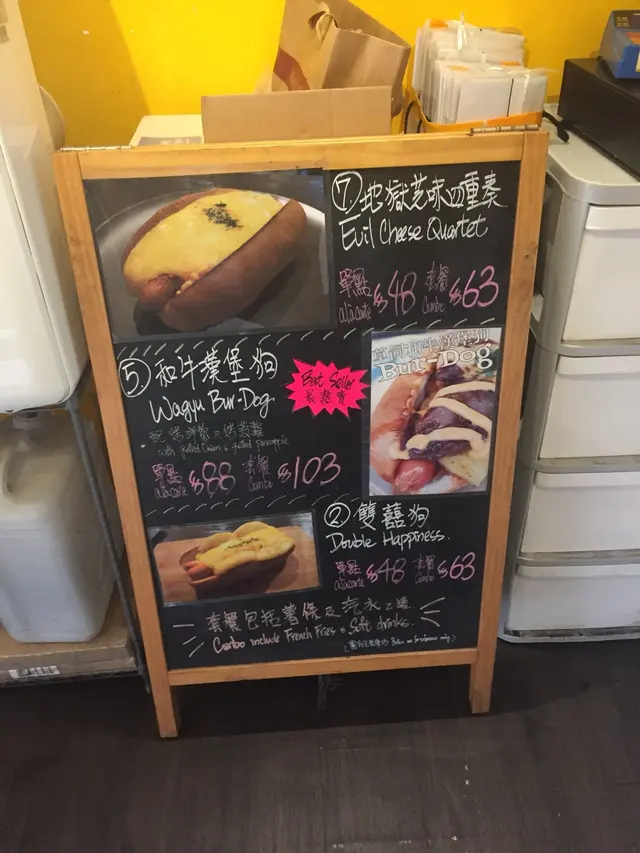 ⑦地獄芝味四重奏
Evil Cheese Quartet
單點 套餐
àlacarte $48 Combo $63
⑤和牛漢堡狗
Wagyu Bur-Dog
Best Seller
最熱賣
配烤洋蔥及烤菠蘿
with grilled Onion & grilled pineapple
單點 套餐
àlacarte $88 Combo $103
草飼和牛漢堡狗
Bur-Dog
②雙囍狗
Double Happiness.
單點 套餐
àlacarte $48 Combo $63
套餐包括薯條及汽水乙罐
Combo include French Fries & Soft drinks.